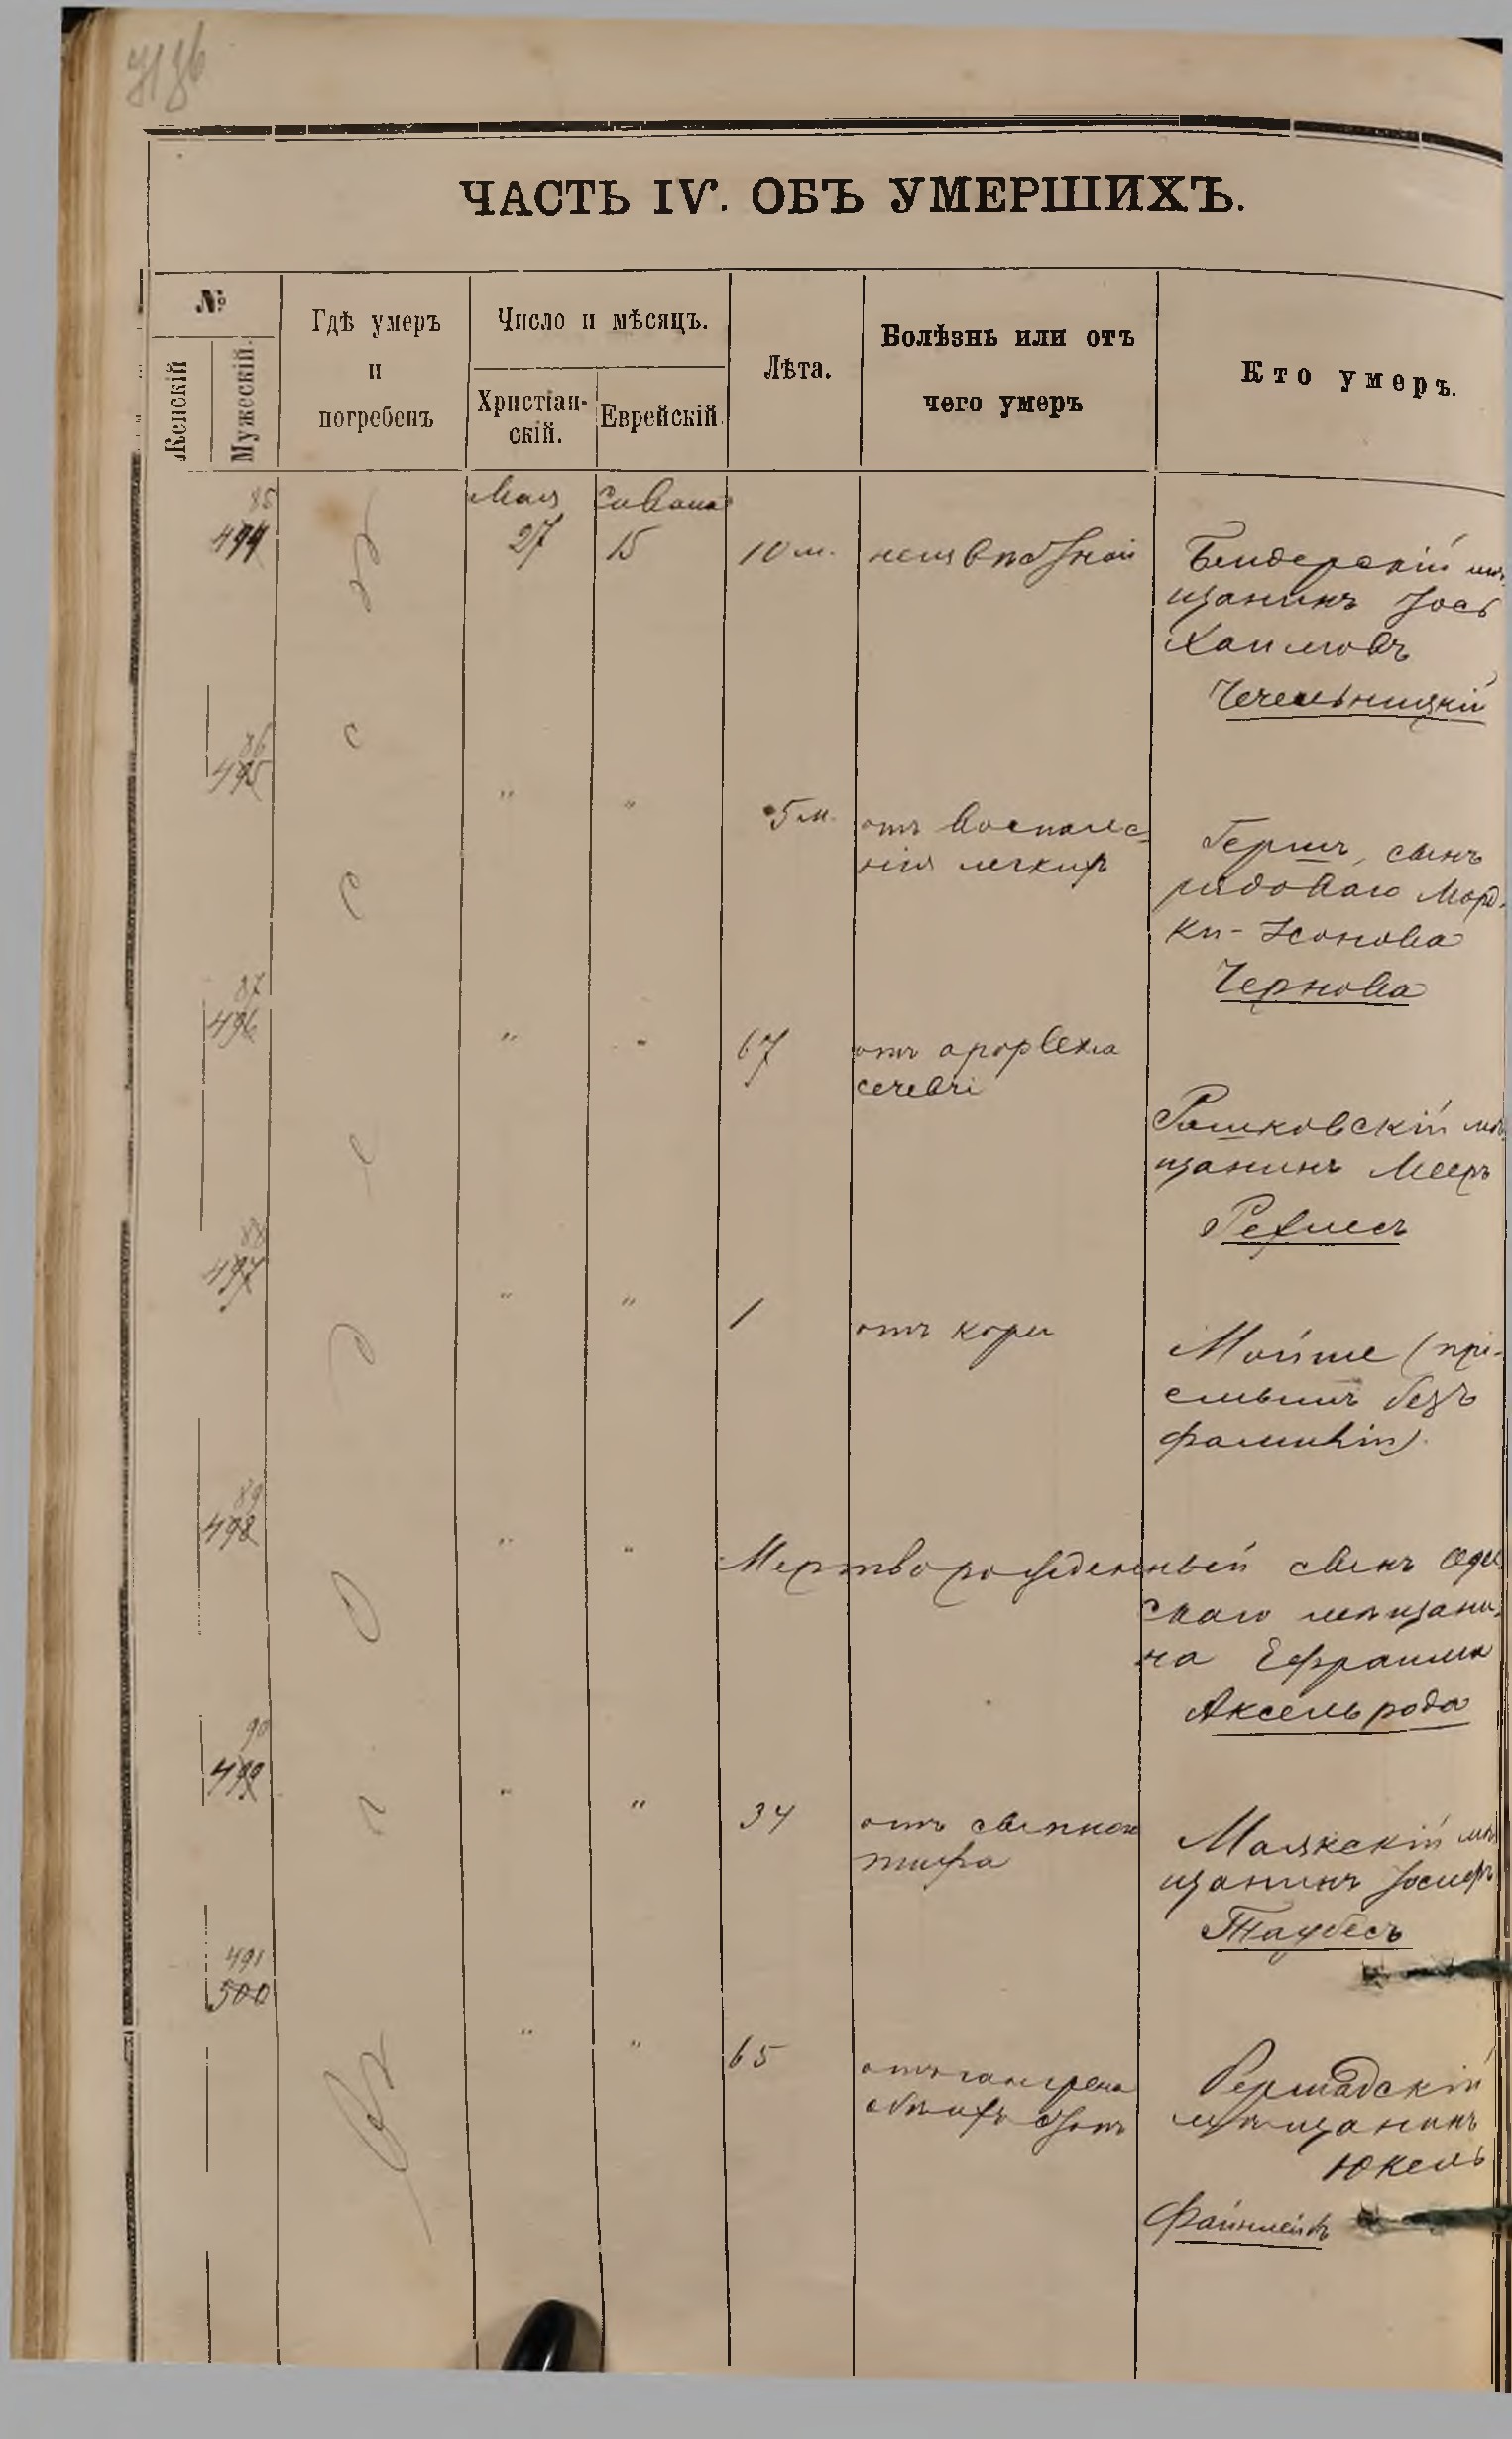 ЧАСТЬ IV. ОБЪ УМЕРШИХЪ.
№
Женскій
Мужескій.
Гдѣ умеръ
и
погребенъ
Число и мѣсяцъ.
Христіан-
скій.
Еврейскій.
Лѣта.
Болѣзнь или отъ
чего умеръ
Кто умеръ.
85
494
Мая
27
Сивана
15
10 м.
неизвѣстной
Бендерскій мѣ-
щанинъ Іось
Хаимовъ
Чечельницкій
86
495
" "
5 м.
отъ воспале-
нія легкихъ
Гершъ, сынъ
рядоваго Морд-
ки-Нонова
Чернова
87
496
" "
67
отъ
Рашковскій мѣ-
щанинъ Мееръ
88
497
" "
1
отъ кори
Мойше (прі-
емышъ безъ
фамиліи).
89
498
" "
Мертворожденный сынъ Одес-
скаго мѣщани-
на Ефраима
Аксельрода
90
499
" "
34
отъ сыпного
тифа
Маякскій мѣ-
щанинъ Іосифъ
Таубесъ
491
500
" "
65
отъ гангрена
обѣихъ
Бершадскій
мѣщанинъ
Юкель